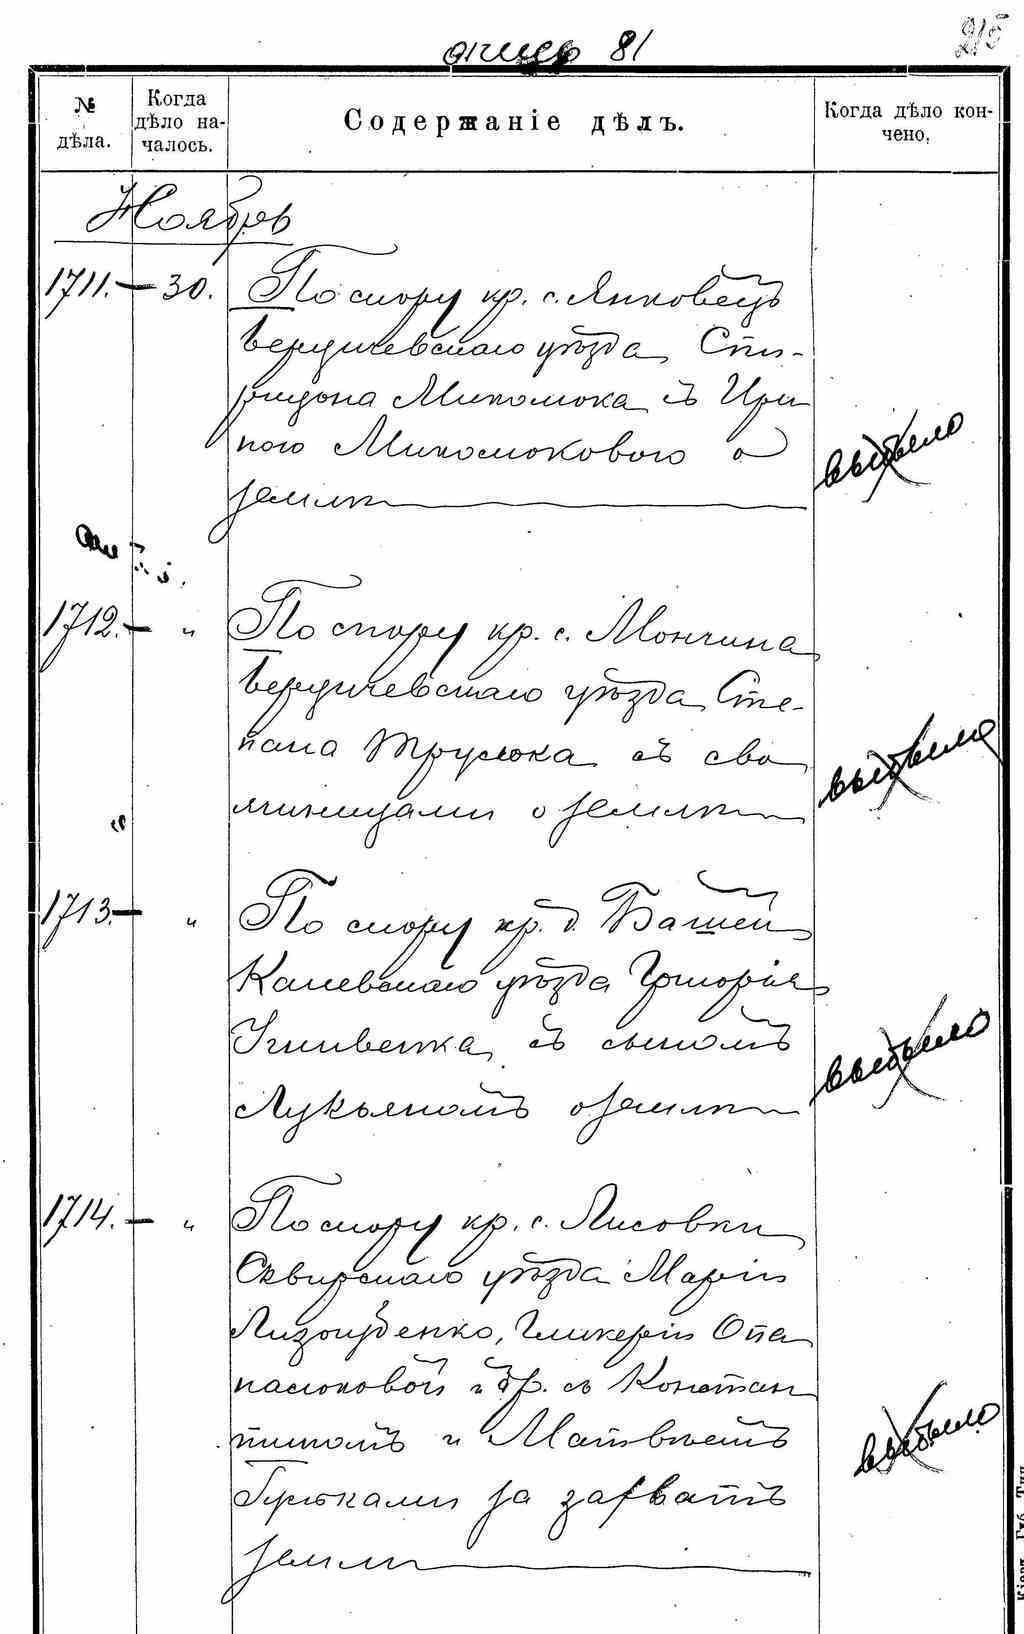 опись 81
215
№ дѣла.
Когда дѣло началось.
Содержаніе дѣлъ.
Когда дѣло кончено.
Ноябрь
1711. — 30. По спору кр. с. Янковецъ
Бердичевскаго уѣзда Спи-
ридона Миколюка съ Ири
ною Миколюковою о
землѣ
выбыло
1712. — " По спору кр. с. Мончина
Бердичевскаго уѣзда Сте-
пана Трусюка съ сво
выбыло
"
1713. — " По спору кр. д.
Каневскаго уѣзда Григорія
съ сыномъ
Лукьяномъ о землѣ
выбыло
1714. — " По спору кр. с. Лисовки
Сквирскаго уѣзда Маріи
Лизогубенко, Гликеріи Опа
насюковой и др. съ Констан
тиномъ и Матвѣемъ
за захватъ
земли
выбыло
Кіевъ. Губ. Тип.